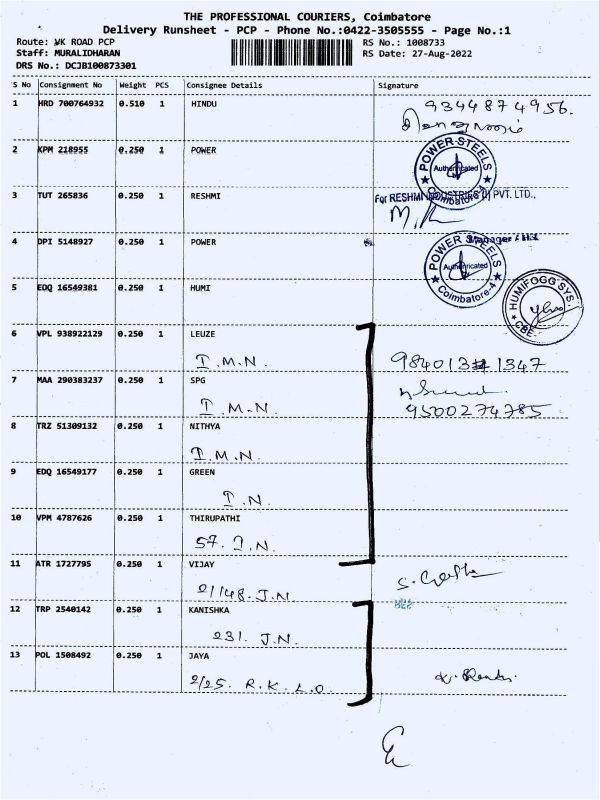 THE PROFESSIONAL COURIERS, Coimbatore
Delivery Runsheet - PCP - Phone No.:0422-3505555 - Page No.:1
Route: VK ROAD PCP RS No.: 1008733
Staff: MURALIDHARAN RS Date: 27-Aug-2022
DRS No.: DCJB100873301
S No Consignment No Weight PCS Consignee Details Signature
1 HRD 700764932 0.510 1 HINDU
9344874956.
2 KPM 218955 0.250 1 POWER
POWER STEELS
Authenticated
Coimbatore-4
3 TUT 265836 0.250 1 RESHMI
For RESHMI INDUSTRIES (I) PVT. LTD.,
4 DPI 5148927 0.250 1 POWER
Manager
POWER STEELS
Authenticated
Coimbatore-4
5 EDQ 16549381 0.250 1 HUMI
HUMIFOGG SYS
CBE
6 VPL 938922129 0.250 1 LEUZE
I.M.N. 984013 1347
7 MAA 290383237 0.250 1 SPG
I.M.N. 9500274785
8 TRZ 51309132 0.250 1 NITHYA
I.M.N.
9 EDQ 16549177 0.250 1 GREEN
I.N.
10 VPM 4787626 0.250 1 THIRUPATHI
57. I.N.
11 ATR 1727795 0.250 1 VIJAY
2/148. J.N.
12 TRP 2540142 0.250 1 KANISHKA
231. J.N.
13 POL 1508492 0.250 1 JAYA
2/25. R.K.L.O.